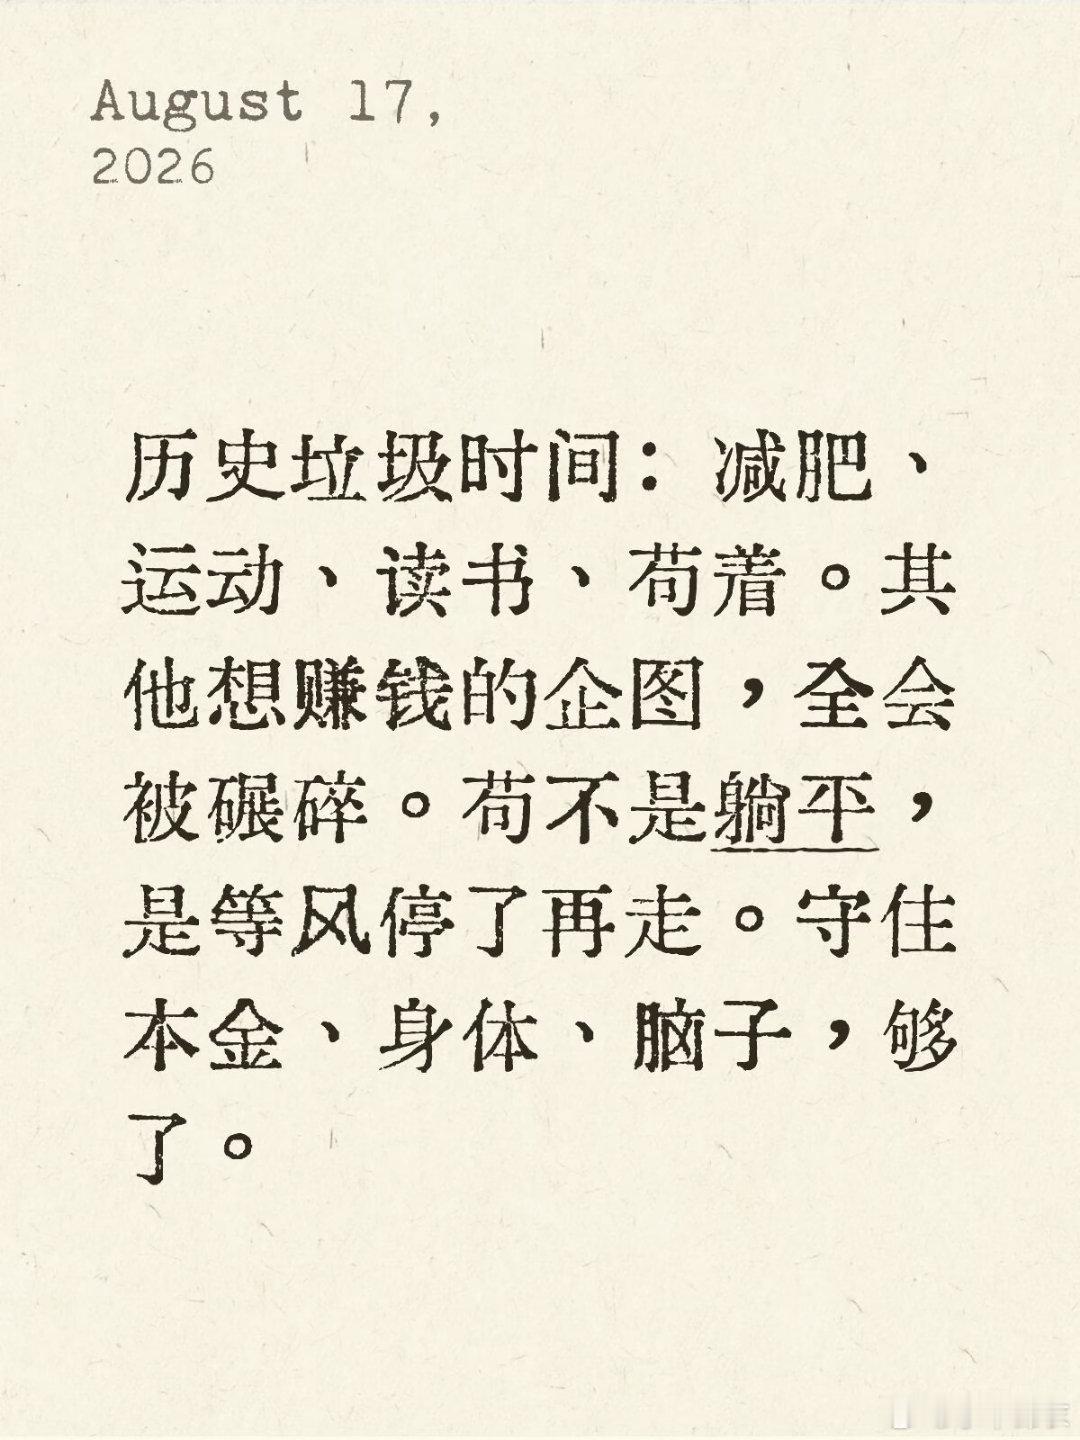 August 17,
2026
历史垃圾时间：减肥、
运动、读书、苟着。其
他想赚钱的企图，全会
被碾碎。苟不是躺平，
是等风停了再走。守住
本金、身体、脑子，够
了。